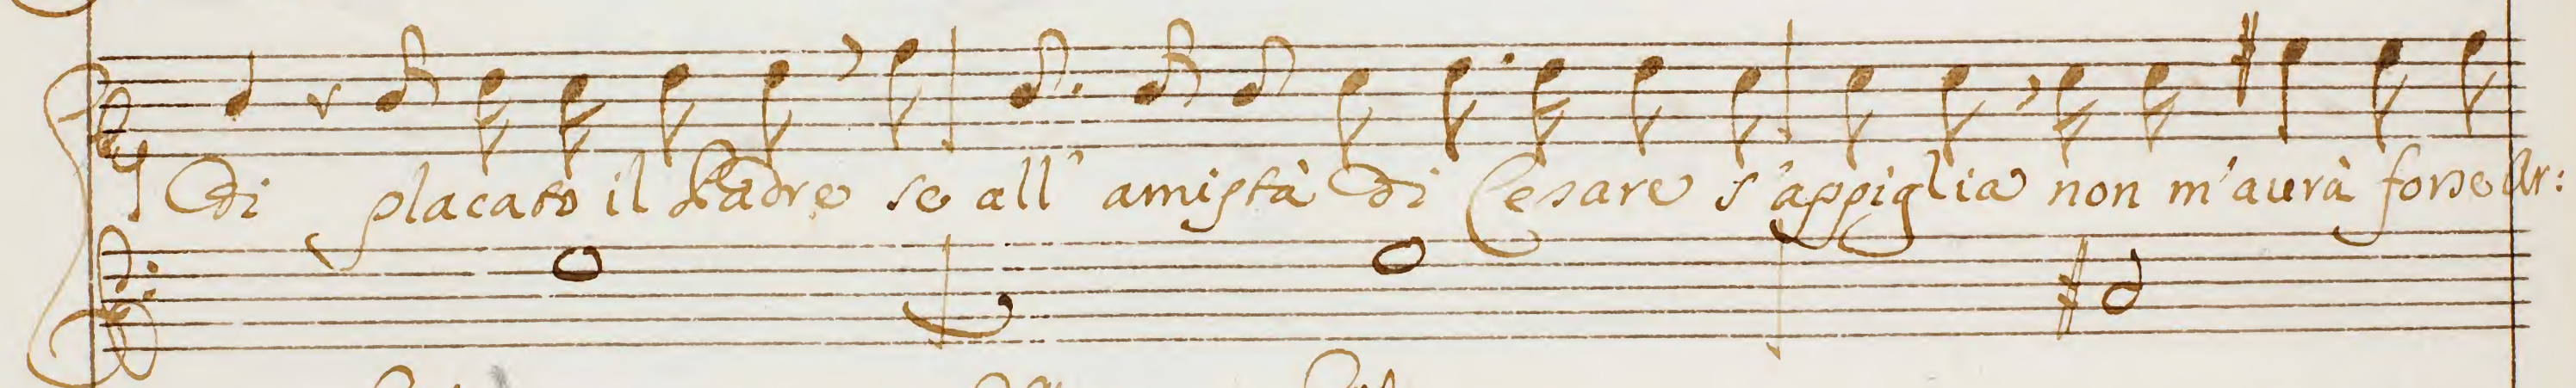 di placato il Padre se all' amistà di Cesare s'appiglia non m'aurà forse Ar: